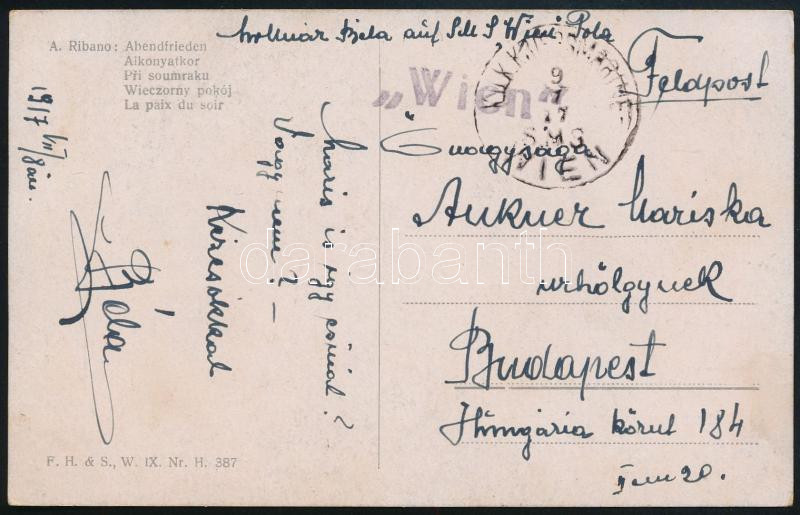 A. Ribano: Abendfrieden
Alkonyatkor
Při soumraku
Wieczorny pokój
La paix du soir
Béla auf S.M.S. Wien Pola
Feldpost
„Wien“
K.U.K. KRIEGSMARINE
9
VII
17
S.M.S
WIEN
Őnagysága
Aukner Mariska
úrhölgynek
Budapest
Hungária körut 184
I em 20.
1917 VII/8 án.
Maris is így csinál?
Vagy nem? –
Kézcsókkal
Béla
F. H. & S., W. IX. Nr. H. 387
darabanth